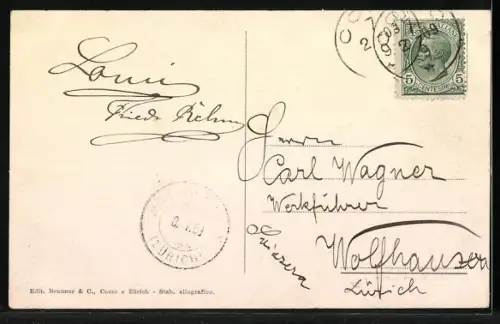 COMO
5
CENTESIMI
5
Friedr. Rehm
Herrn
Carl Wagner
Werkführer
Wolfhausen
Zürich
Svizzera
(ZÜRICH)
Edit. Brunner & C., Como e Zürich - Stab. eliografico.